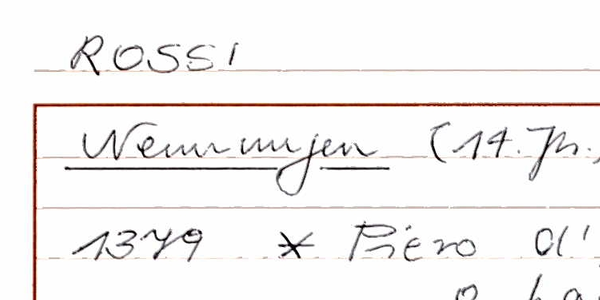 ROSSI
Nennungen (14. Jh.
1379 * Piero d'